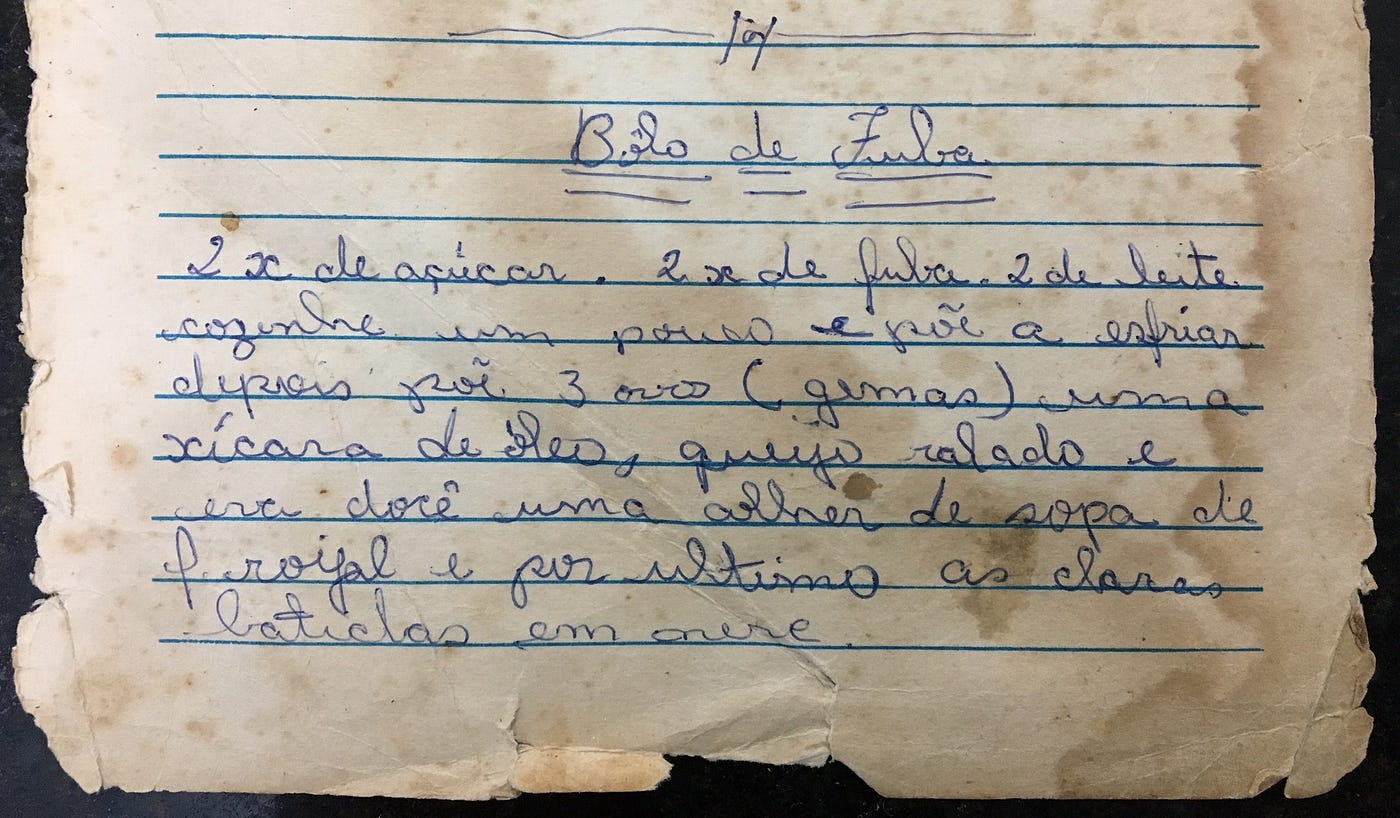 Bôlo de Fuba
2 x de açúcar. 2 x de fuba. 2 de leite
cozinhe um pouco e põe a esfriar
depois põe 3 ovo (gemas) uma
xícara de óleo, queijo ralado e
erva docê uma colher de sopa de
f. royal e por ultimo as claras
batidas em neve.